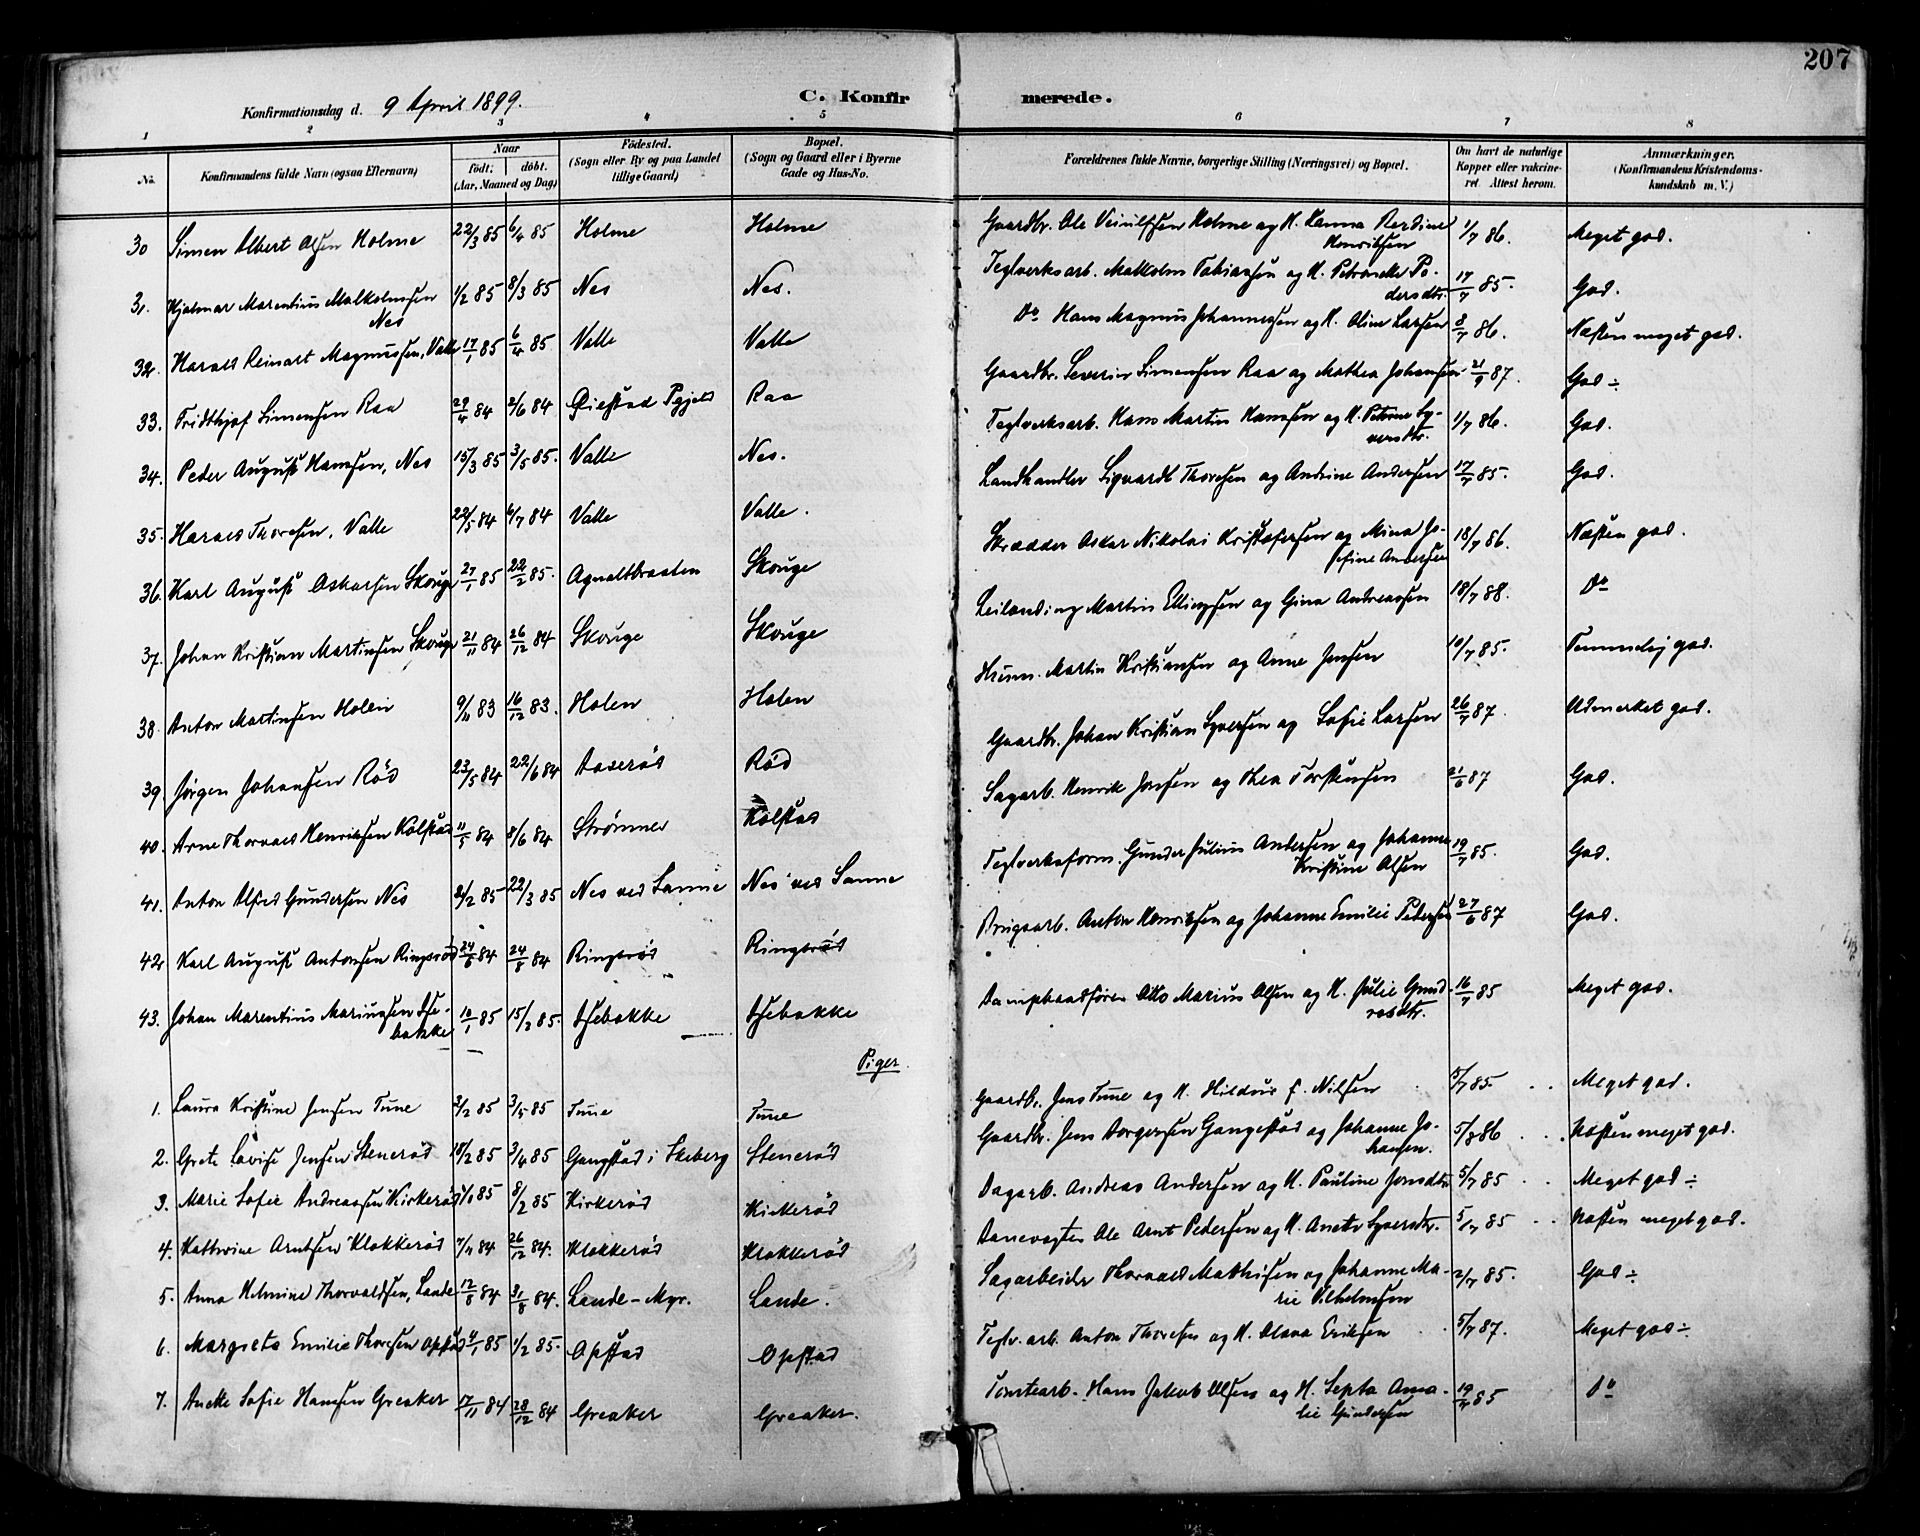 207
Konfirmationsdag d. 9 April 1899.
C. Konfirmerede.
1 2 3 4 5 6 7 8
No. Konfirmandens fulde Navn (ogsaa Efternavn) Naar født. døbt. (Aar, Maaned og Dag) Fødested. (Sogn eller By og paa Landet tillige Gaard) Bopæl. (Sogn og Gaard eller i Byerne Gade og Hus-No. Forældrenes fulde Navne, borgerlige Stilling (Næringsvei) og Bopæl. Om havt de naturlige Kopper eller vakcineret. Attest herom. Anmærkninger. (Konfirmandens Kristendomskundskab m. V.)
30 Simen Albert Olsen Holme 22/3 85 6/4 85 Holme Holme Gaardbr. Ole Holme og H. Hanna Henriksen 1/7 86. Meget god.
31. Hjalmar Marentius Malkolmsen Nes 1/2 85 8/3 85 Nes Nes. Teglverksarb. Malkolm Tobiassen og H. Petronelle Pedersdtr. 17/7 85. God.
32. Harald Reinart Magnussen, Valle 17/1 85 6/4 85 Valle Valle Do Hans Magnus Johannessen og H. Oline Larsen 8/7 86. Næsten meget god.
33. Fridthjof Simensen Raa 29/4 84 2/6 84 Øiestad Pgjeld Raa Gaardbr. Severin Simensen Raa og Mathea Johansen 21/9 87. God ÷
34. Peder August Hansen, Nes 15/3 85 3/5 85. Valle Nes. Teglverksarb. Hans Martin Hansen og H. Petrine Syversdtr. 1/7 86. God.
35. Harald Thoresen, Valle 22/5 84 6/7 84 Valle Valle. Landhandler Sigvardt Thoresen og Andrine Andersen 17/7 85. God.
36. Karl August Oskarsen Skouge 27/1 85 22/2 85. Agnaltbraaten Skouge Skrædder Oskar Nikolai Kristofersen og Mina Josefine Andersen 18/7 86. Næsten god.
37. Johan Kristian Martinsen Skouge 21/11 84 26/12 84 Skouge Skouge Leilending Martin Ellingsen og Gina Andreassen 18/7 88. Do
38. Anton Martinsen Holen 9/11 83 16/12 83. Holen Holen Husm. Martin Kristiansen og Anne Jensen 10/7 85. Temmelig god.
39. Jørgen Johansen Rød 23/5 84 22/6 84 Aaserød Rød Gaardbr. Johan Kristian Syversen og Sofie Larsen 26/7 87. Udmerket god.
40. Arne Thorvald Henriksen Kolstad 11/5 84 8/6 84 Strømmer Kolstad Sagarb. Henrik Jensen og Thea Torstensen 21/6 87 God.
41. Anton Alfred Gundersen Nes 2/2 85 22/3 85 Nes ved Sanne Nes ved Sanne Teglverksform. Gunder Julius Andersen og Johanne Kristine Olsen 19/7 85. God.
42. Karl August Antonsen Ringsrød 24/6 84 24/8 84 Ringsrød Ringsrød Brugsarb. Anton Henriksen og Johanne Emilie Petersen 27/6 87 God.
43. Johan Marentius Mariussen Isebakke 10/1 85 15/2 85. Isebakke Isebakke Dampbaadfører Otto Marius Olsen og H. Julie Gundersdtr. 16/7 85 Meget god.
Piger.
1. Laura Kristine Jensen Tune 3/2 85 3/5 85 Tune Tune Gaardb. Jens Tune og H. Hildur f. Nilsen 5/7 85. Meget god.
2. Grete Lovise Jensen Stenerød 18/2 85 3/4 85 Gangstad i Skeberg Stenerød Gaardbr. Jens Borgersen Gangestad og Johanne Johansen. 5/8 86 Næsten meget god.
3. Marie Sofie Andreassen Kirkerød 1/1 85 8/2 85 Kirkerød Kirkerød Dagarb. Andreas Andersen og H. Pauline Jensdtr 5/7 85 Meget god ÷
4. Kathrine Arntsen Klokkerød 7/11 84 26/12 84. Klokkerød Klokkerød Banevogter Ole Arnt Pedersen og H. Anette Syversdtr. 5/7 85 Næsten meget god.
5. Anna Helmine Thorvaldsen, Lande 12/8 84 31/8 84. Lande-Myr. Lande. Sagarbeider Thorvald Mathisen og Johanne Marie Vilhelmsen 2/7 85. God ÷
6. Margreta Emilie Thoresen Opstad 4/1 85 1/2 85. Opstad Opstad Teglv. arb. Anton Thoresen og H. Olava Eriksen 5/7 87. Meget god ÷
7. Anette Sofie Hansen Greaker 17/11 84 28/12 84 Greaker Greaker. Tomtearb. Hans Jakob Olsen og H. Septa Amalie Gundersen 19/7 85 Do